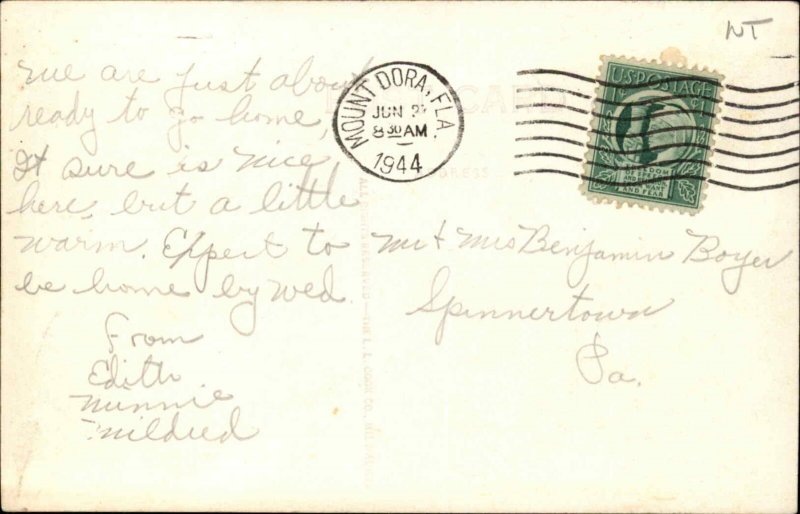 NT
We are just about
ready to go home,
It sure is nice
here, but a little
warm. Expect to
be home by Wed.
From
Edith
Minnie
Mildred
MOUNT DORA, FLA.
JUN
8 30 AM
1944
U.S. POSTAGE
1¢ 1¢
FREEDOM
OF SPEECH
AND RELIGION,
FROM WANT
AND FEAR
CARD
ADDRESS
Mr & Mrs Benjamin Boyer
Spinnertown
Pa.